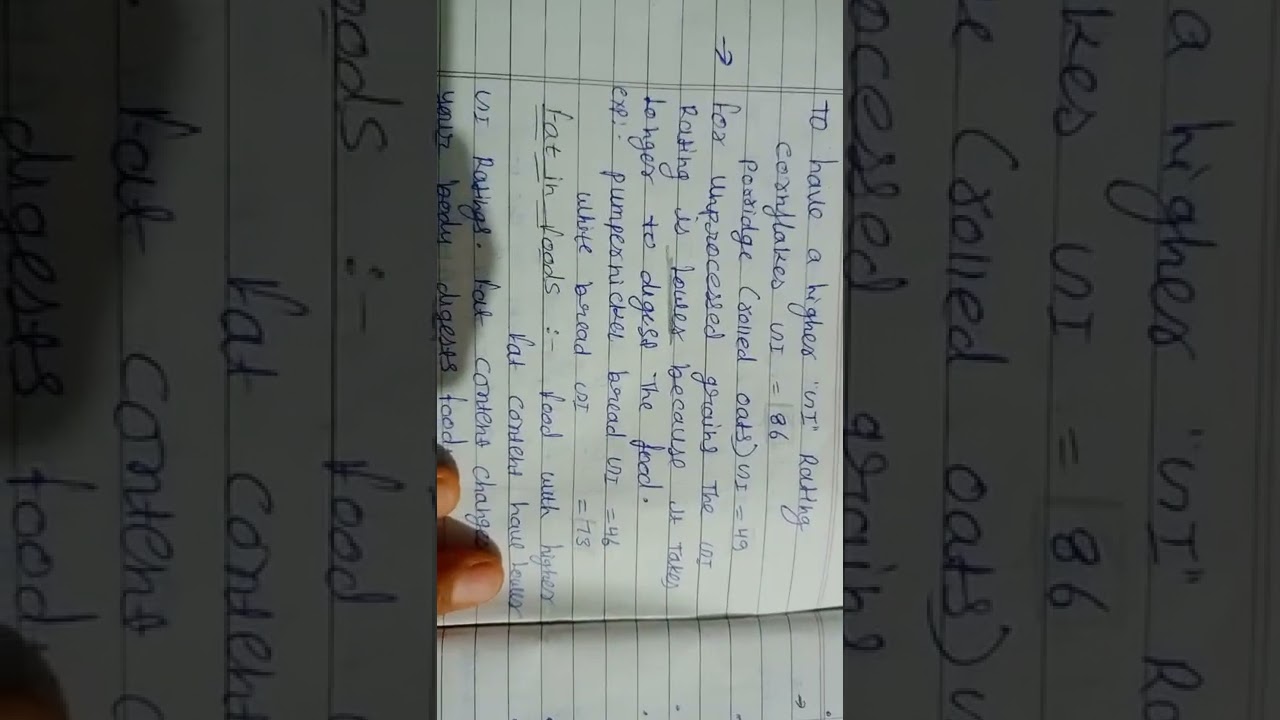 To have a higher "GI" Rating
cornflakes GI = 86
Porridge (rolled oats) GI = 49
→ for unprocessed grains the GI
Rating is lower because it takes
longer to digest the food.
exp:- pumpernickel bread GI = 46
white bread GI = 73
fat in foods :- food with higher
fat content have lower
GI Ratings. fat content changes
your body digests food